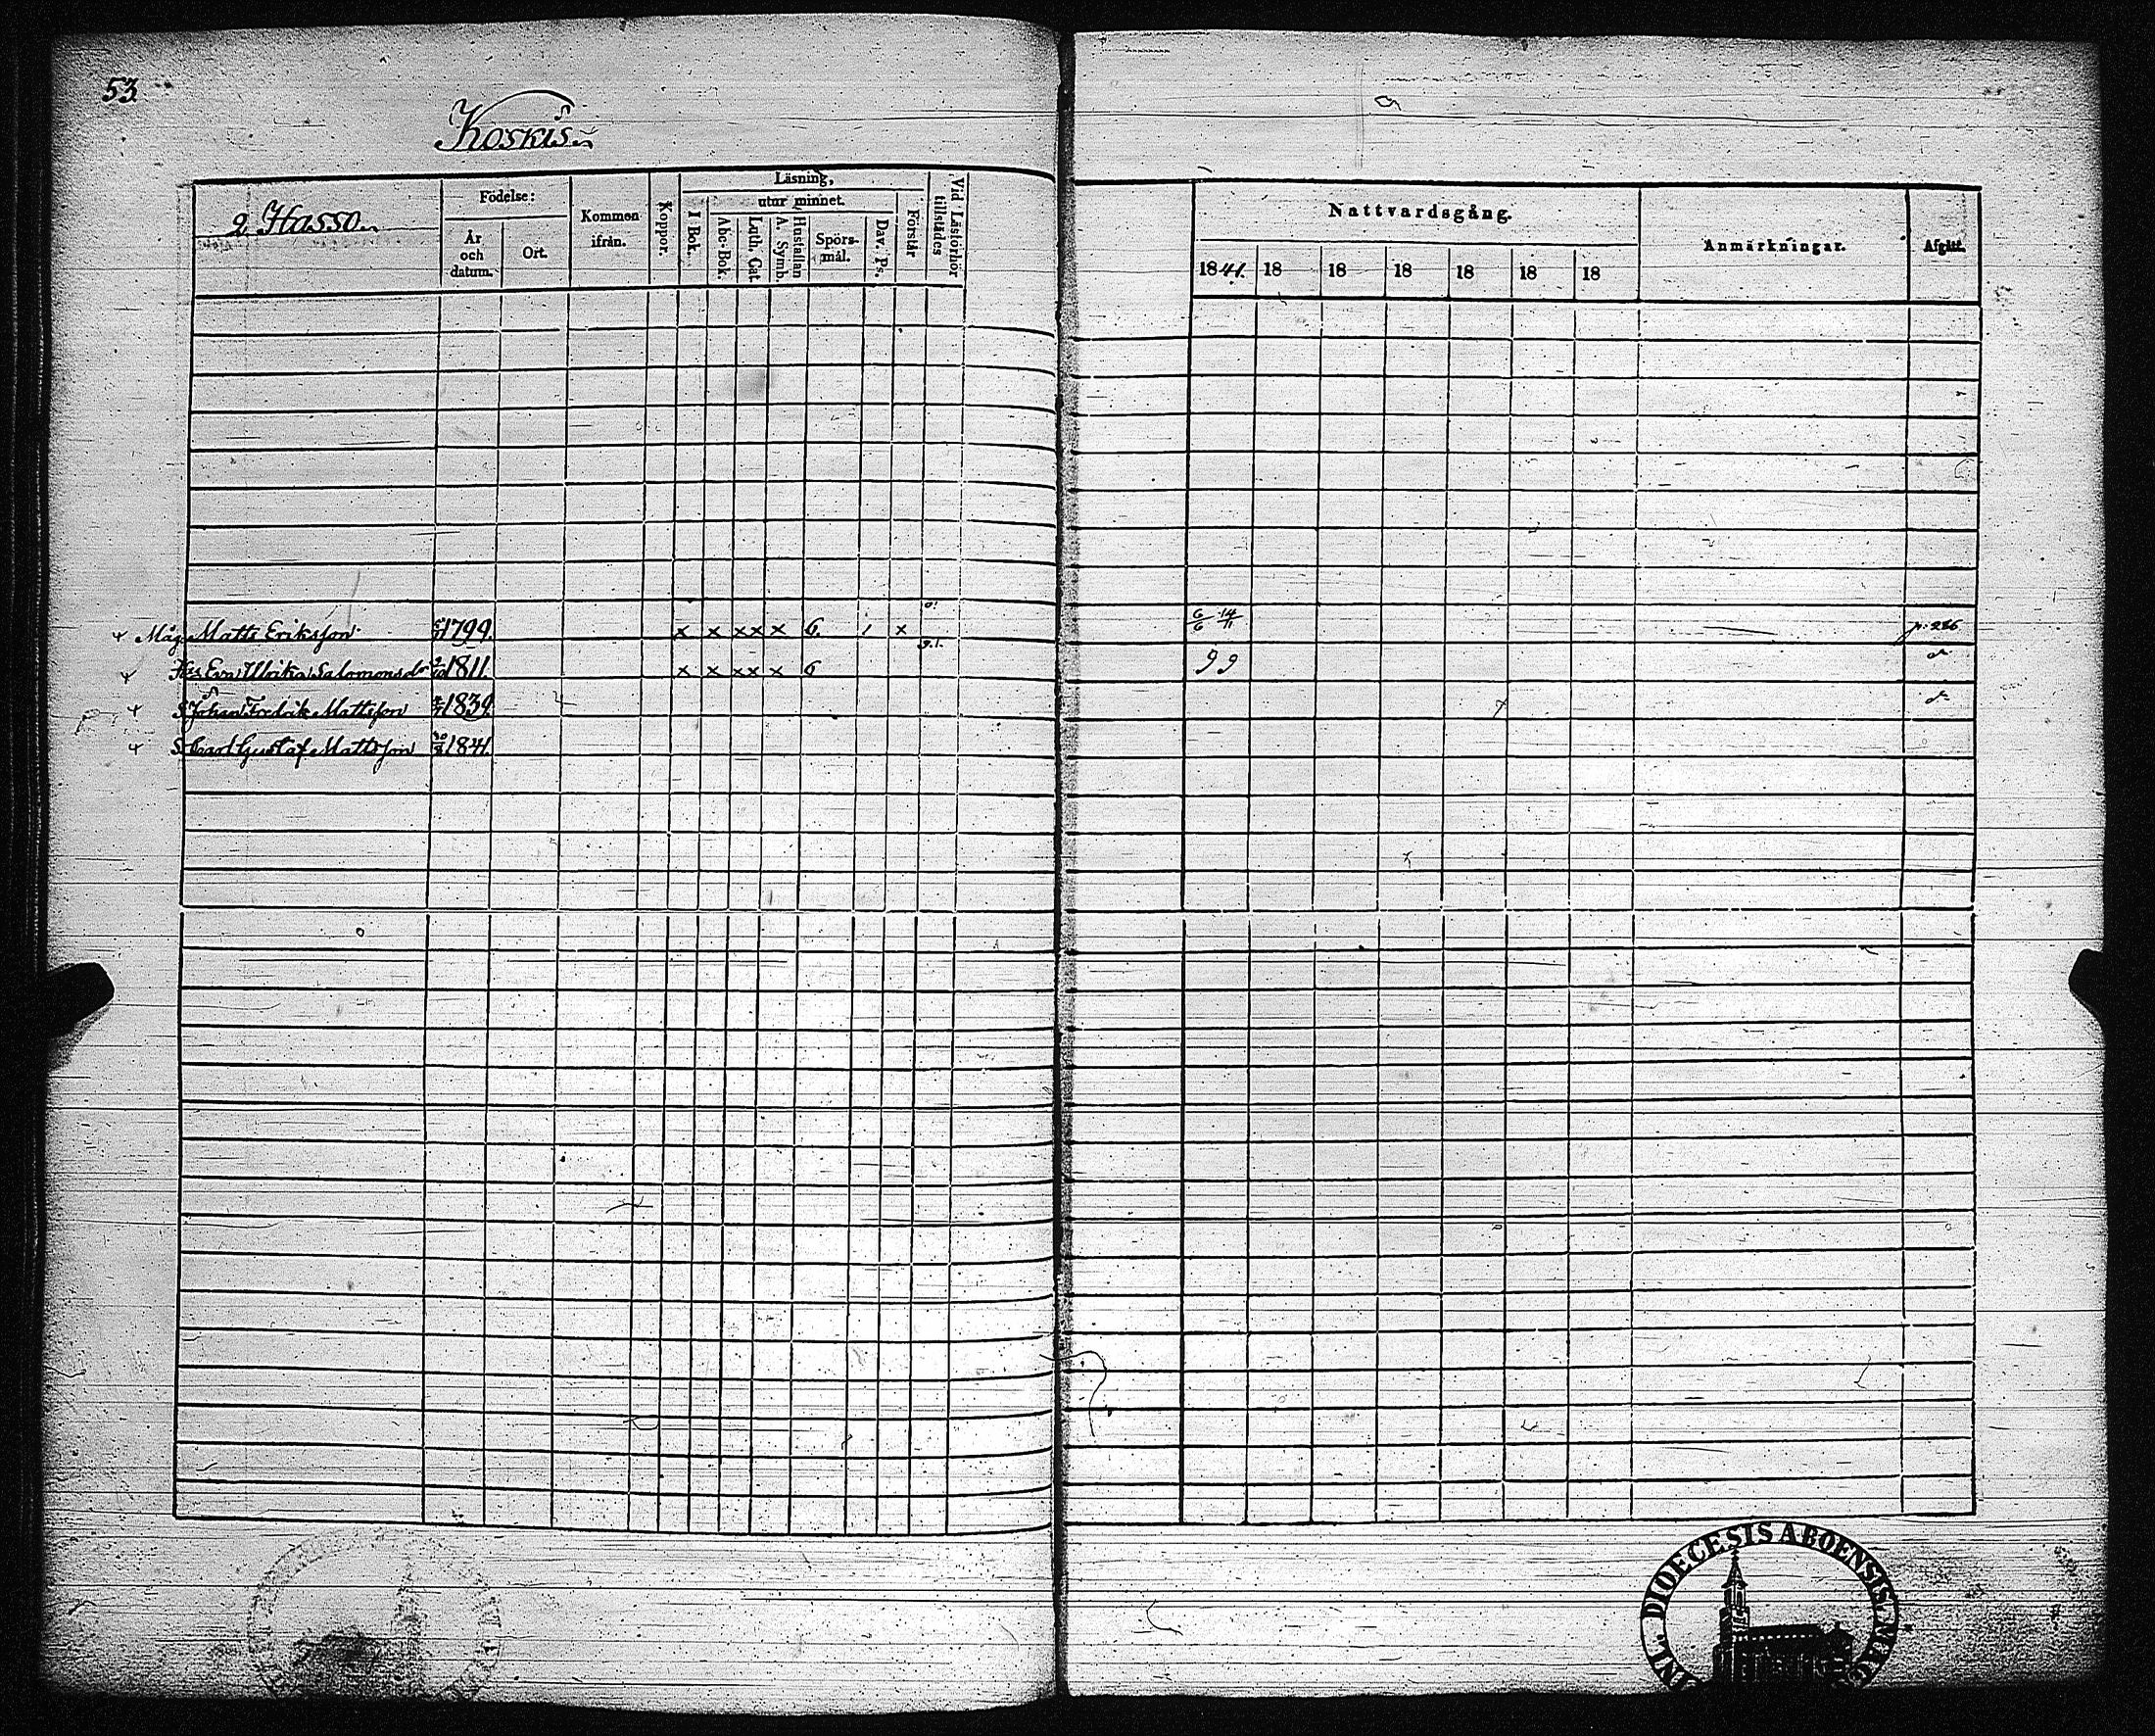 53.
Koskis.
2 Hasso.
Födelse:
År och datum.
Ort.
Kommen ifrån.
Koppor.
Läsning,
I Bok.
utur minnet.
Abc-Bok.
Luth. Cat.
Hustaflan A. Symb.
Spörsmål.
Dav. Ps.
Förstår
Vid Läsförhör tillstädes
Nattvardsgång.
1841. 18 18 18 18 18 18
Anmärkningar.
Afgått.
Måg Matts Eriksson 1799. x x x x x 6. 1 x 6/6 14/11 p. 226
Hus Eva Ulrika Salomonsdr 1811. x x x x x 6 9 9
S Johan Fredrik Mattsson 1839.
S Carl Gustaf Mattsson 1841.
DIOECESIS ABOENSIS